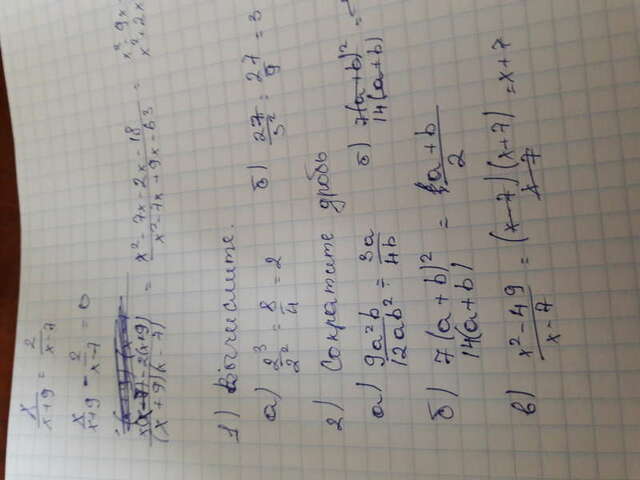 x/(x+9) = 2/(x-7)
x/(x+9) - 2/(x-7) = 0
(x(x-7)-2(x+9))/((x+9)(x-7)) = (x²-7x-2x-18)/(x²-7x+9x-63) = (x²-9x)/(x²+2x)
1) Вычислите.
а) 2³/2² = 8/4 = 2 б) 27/3² = 27/9 = 3
2) Сократите дробь
а) 9a²b/12ab² = 3a/4b б) 7(a+b)²/14(a+b) =
б) 7(a+b)²/14(a+b) = a+b/2
в) x²-49/x-7 = (x-7)(x+7)/x-7 = x+7